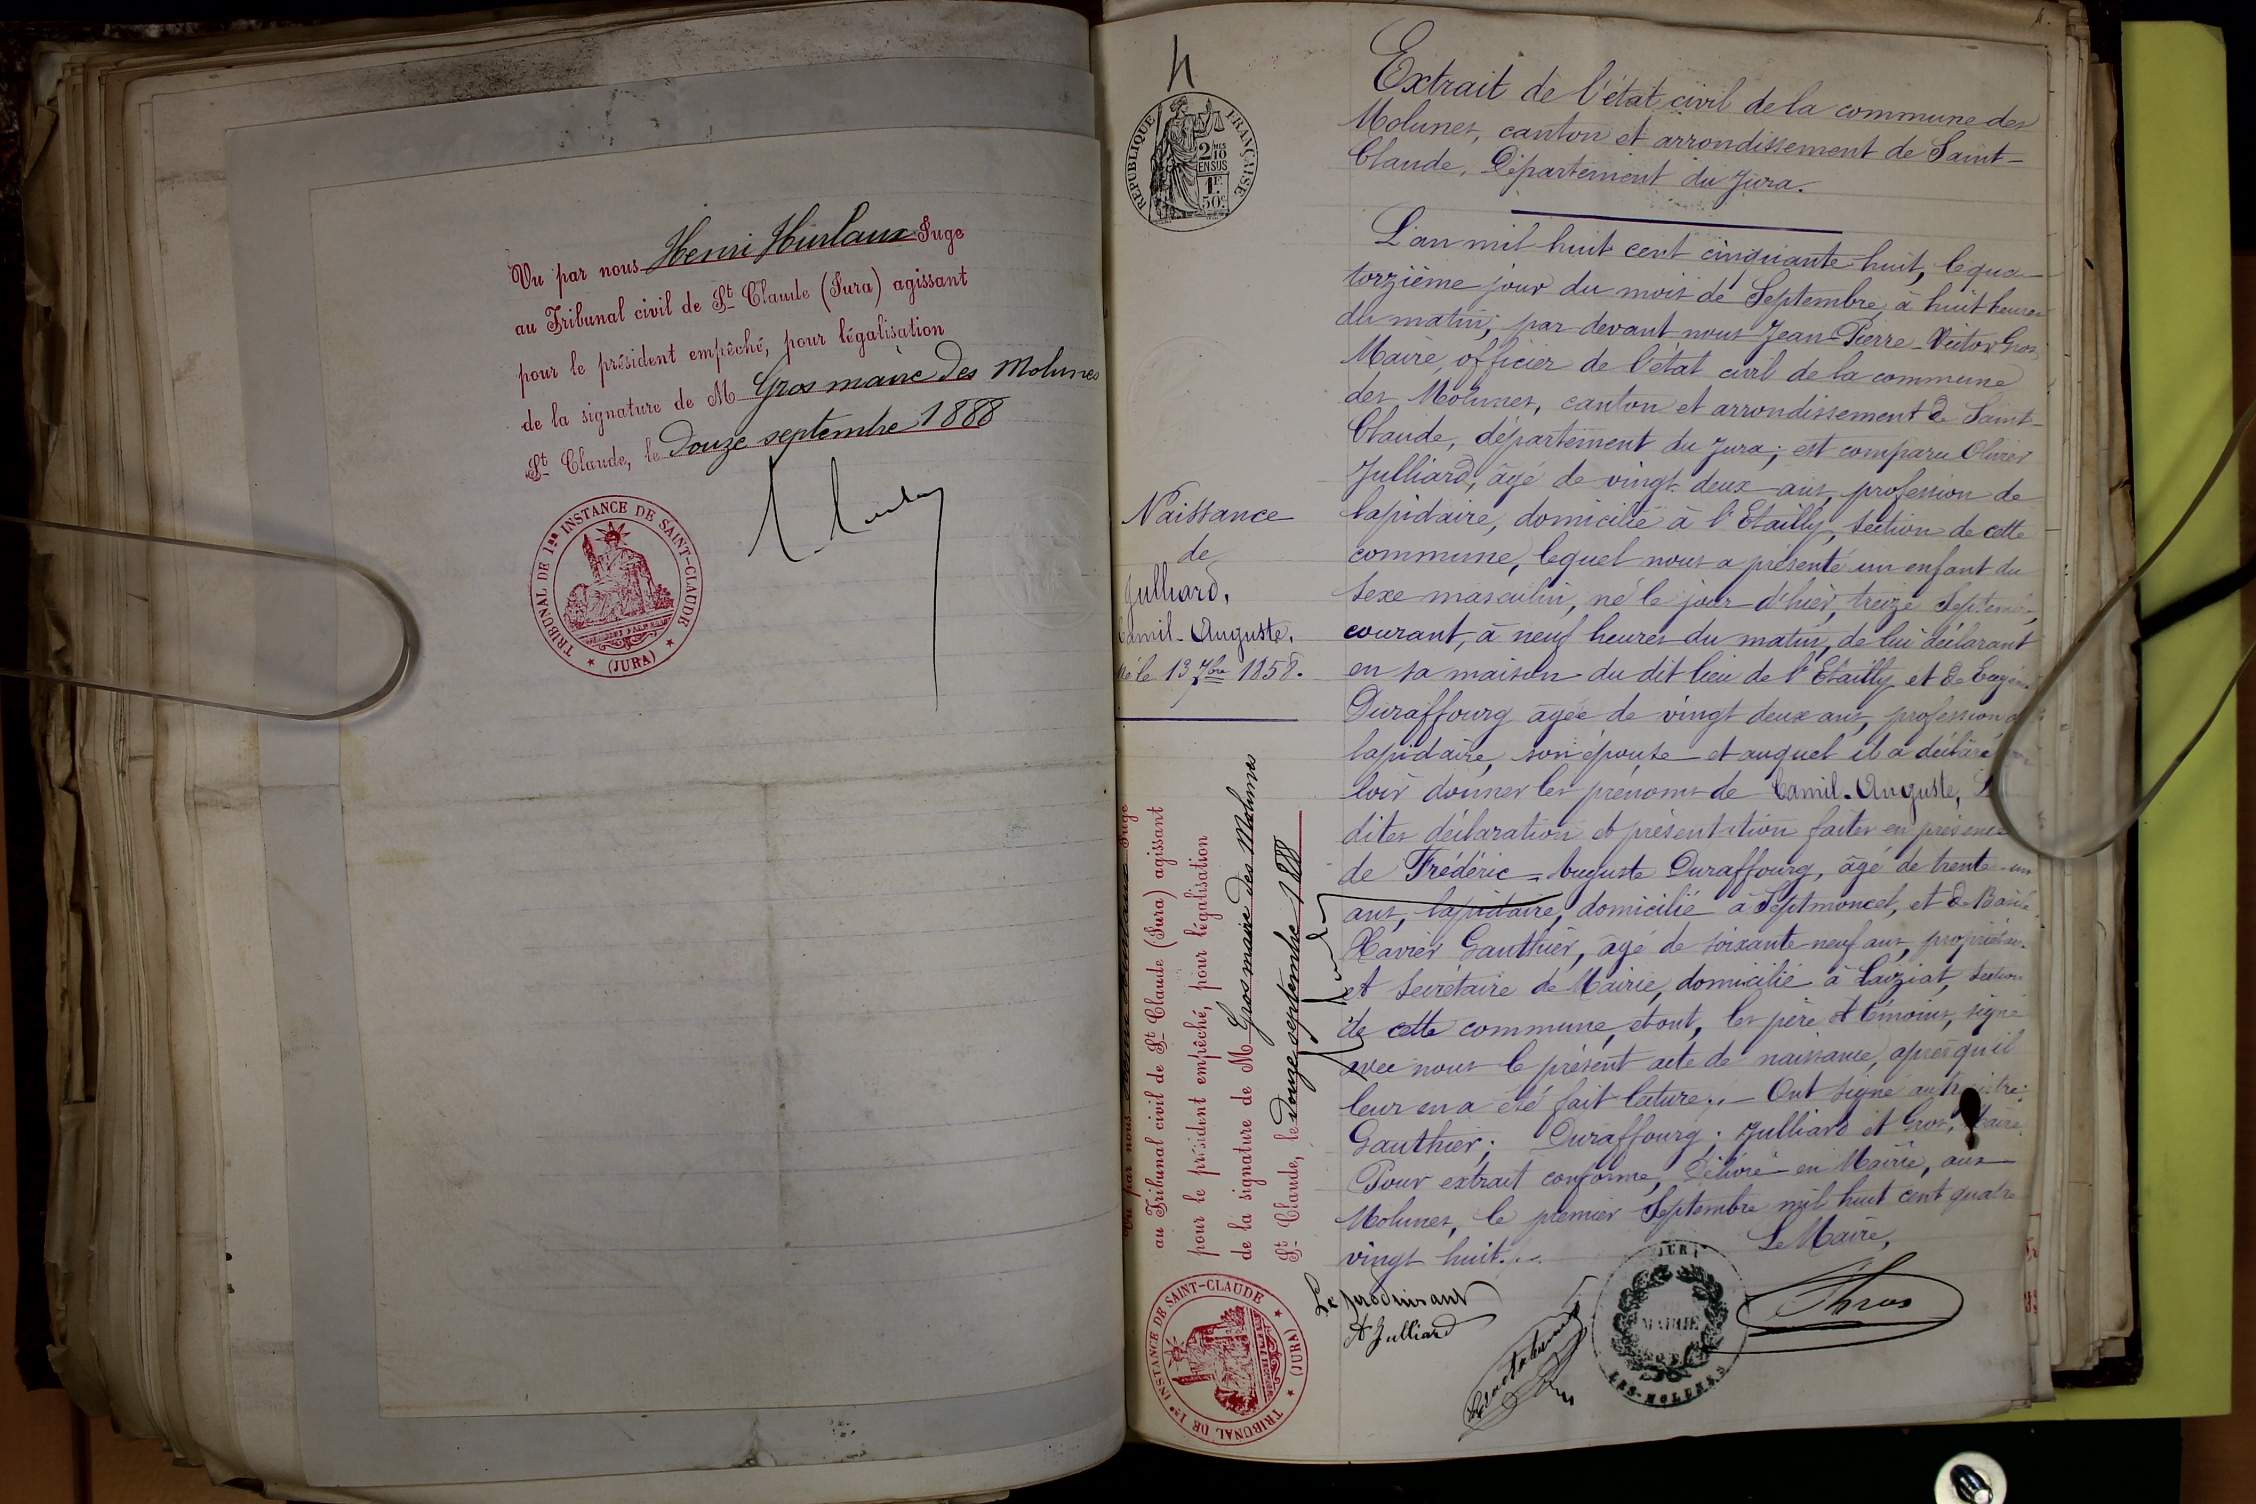 Vu par nous Henri Huilaux Juge
au Tribunal civil de St. Claude (Jura) agissant
pour le président empêché, pour légalisation
de la signature de M Gros maire des Molunes
St. Claude, le douze septembre 1888
TRIBUNAL DE 1re INSTANCE DE SAINT-CLAUDE
(JURA)
4
RÉPUBLIQUE FRANÇAISE
2/10
EN SUS
1F
50c
Naissance
de
Julliard,
Camil-Auguste,
né le 13 7bre 1858.
Extrait de l'état civil de la commune des
Molunes, canton et arrondissement de Saint-
Claude, Département du Jura.
L'an mil huit cent cinquante-huit, le qua-
torzième jour du mois de Septembre, à huit heures
du matin; par devant nous Jean-Pierre-Victor Gros,
Maire, officier de l'état civil de la commune
des Molunes, canton et arrondissement de Saint-
Claude, département du Jura; est comparu Olivier
Julliard, âgé de vingt-deux ans, profession de
lapidaire, domicilié à l'Etailly, section de cette
commune, lequel nous a présenté un enfant du
sexe masculin, né le jour d'hier, treize Septembre
courant, à neuf heures du matin, de lui déclarant
en sa maison du dit lieu de l'Etailly et de
Duraffourg âgée de vingt deux ans, profession
lapidaire, son épouse et auquel il a déclaré
loir donner les prénoms de Camil-Auguste,
dites déclaration et présentation faites en présence
de Frédéric=Auguste Duraffourg, âgé de trente-un
ans, lapidaire, domicilié à Septmoncel, et de
Xavier Gauthier, âgé de soixante-neuf ans, propriétaire
et secrétaire de Mairie, domicilié à Laiziat, section
de cette commune, et ont, les père et témoins, signé
avec nous le présent acte de naissance, après qu'il
leur en a été fait lecture.- Ont signé au registre:
Gauthier; Duraffourg; Julliard et Gros, Maire.
Pour extrait conforme, Délivré en Mairie, aux
Molunes, le premier Septembre mil huit cent quatre
vingt huit.
Le Maire,
Gros
Le produisant
A Julliard
JURA
MAIRIE
LES-MOLUNES
Vu par nous Juge
au Tribunal civil de St. Claude (Jura) agissant
pour le président empêché, pour légalisation
de la signature de M Gros maire des Molunes
St. Claude, le douze septembre 1888
TRIBUNAL DE 1re INSTANCE DE SAINT-CLAUDE
(JURA)